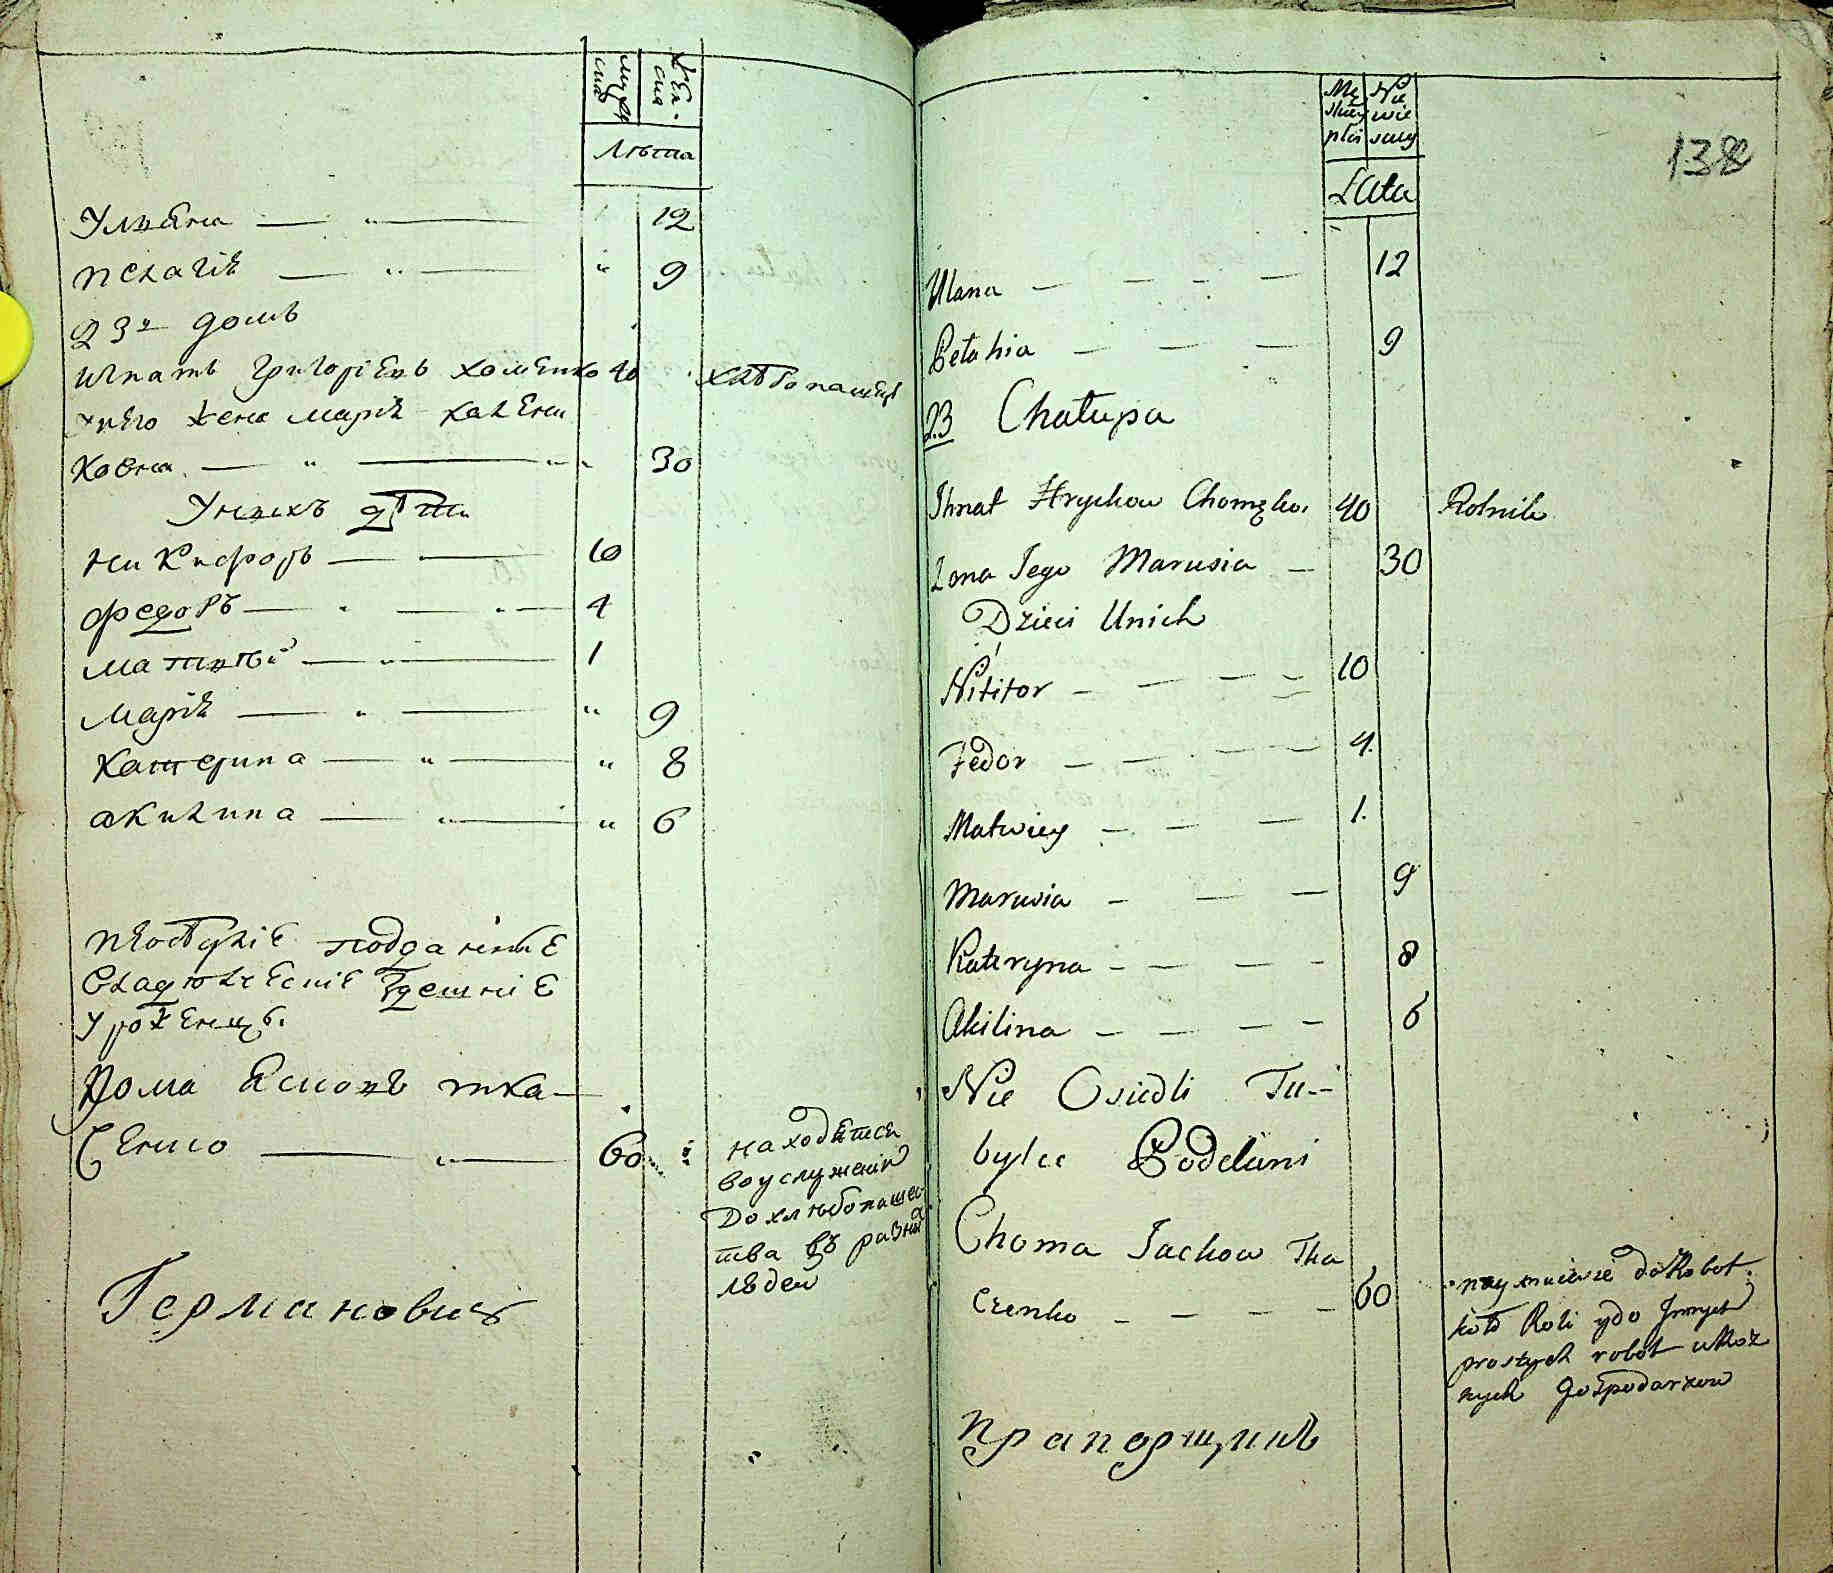 мужеска
женска
Лѣта
Ульяна — " — 12
пелагія — " — " 9
23й домъ
игнатъ григорієвъ хоменко 40 хлѣбопашец
унего жена марія калени
ковна — " — " 30
Унихъ дѣти
никифоръ — 10
федоръ — " — 4
матвѣй — " — 1
марія — " — " 9
катерина — " — " 8
акилина — " — " 6
подданніе
владѣлческіе здешніе
уроженцы.
Хома Яковъ тка—
Ченко — " — 60
находится
воуслуженіи
До хлѣбопашес
тва въ разных
людей
Германовичъ
138
Męskiey płci
Niewieściey
Lata
Ulana — — — — 12
Pelahia — — — 9
23 Chałupa
Ihnat Hryckow Chomęko. 40 Rolnik
Zona Jego Marusia — 30
Dzieci Unich
Nikifor — — — — 10
Fedor — — — — 4.
Matwiey — — — 1.
Marusia — — — 9
Kateryna — — — — 8
Akilina — — — — 6
Nie Osiedli Tu-
bylce Poddani
Choma Jackow Tka
Czenko — — — — 60
naymuiesie do Robot
koło Roli ydo Jnnych
prostych robot uRoż
nych Gospodarzow
Прапорщикъ